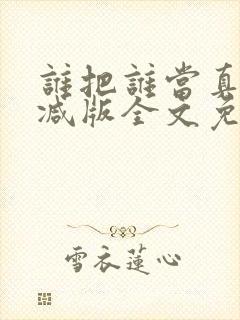 誰把誰當真
减版全文免
雪衣蓮心